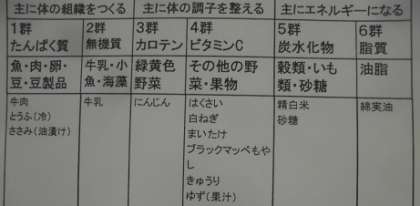 主に体の組織をつくる
主に体の調子を整える
主にエネルギーになる
1群
たんぱく質
2群
無機質
3群
カロテン
4群
ビタミンC
5群
炭水化物
6群
脂質
魚・肉・卵・
豆・豆製品
牛乳・小
魚・海藻
緑黄色
野菜
その他の野
菜・果物
穀類・いも
類・砂糖
油脂
牛肉
とうふ(冷)
ささみ(油漬け)
牛乳
にんじん
はくさい
白ねぎ
まいたけ
ブラックマッペもや
し
きゅうり
ゆず(果汁)
精白米
砂糖
綿実油